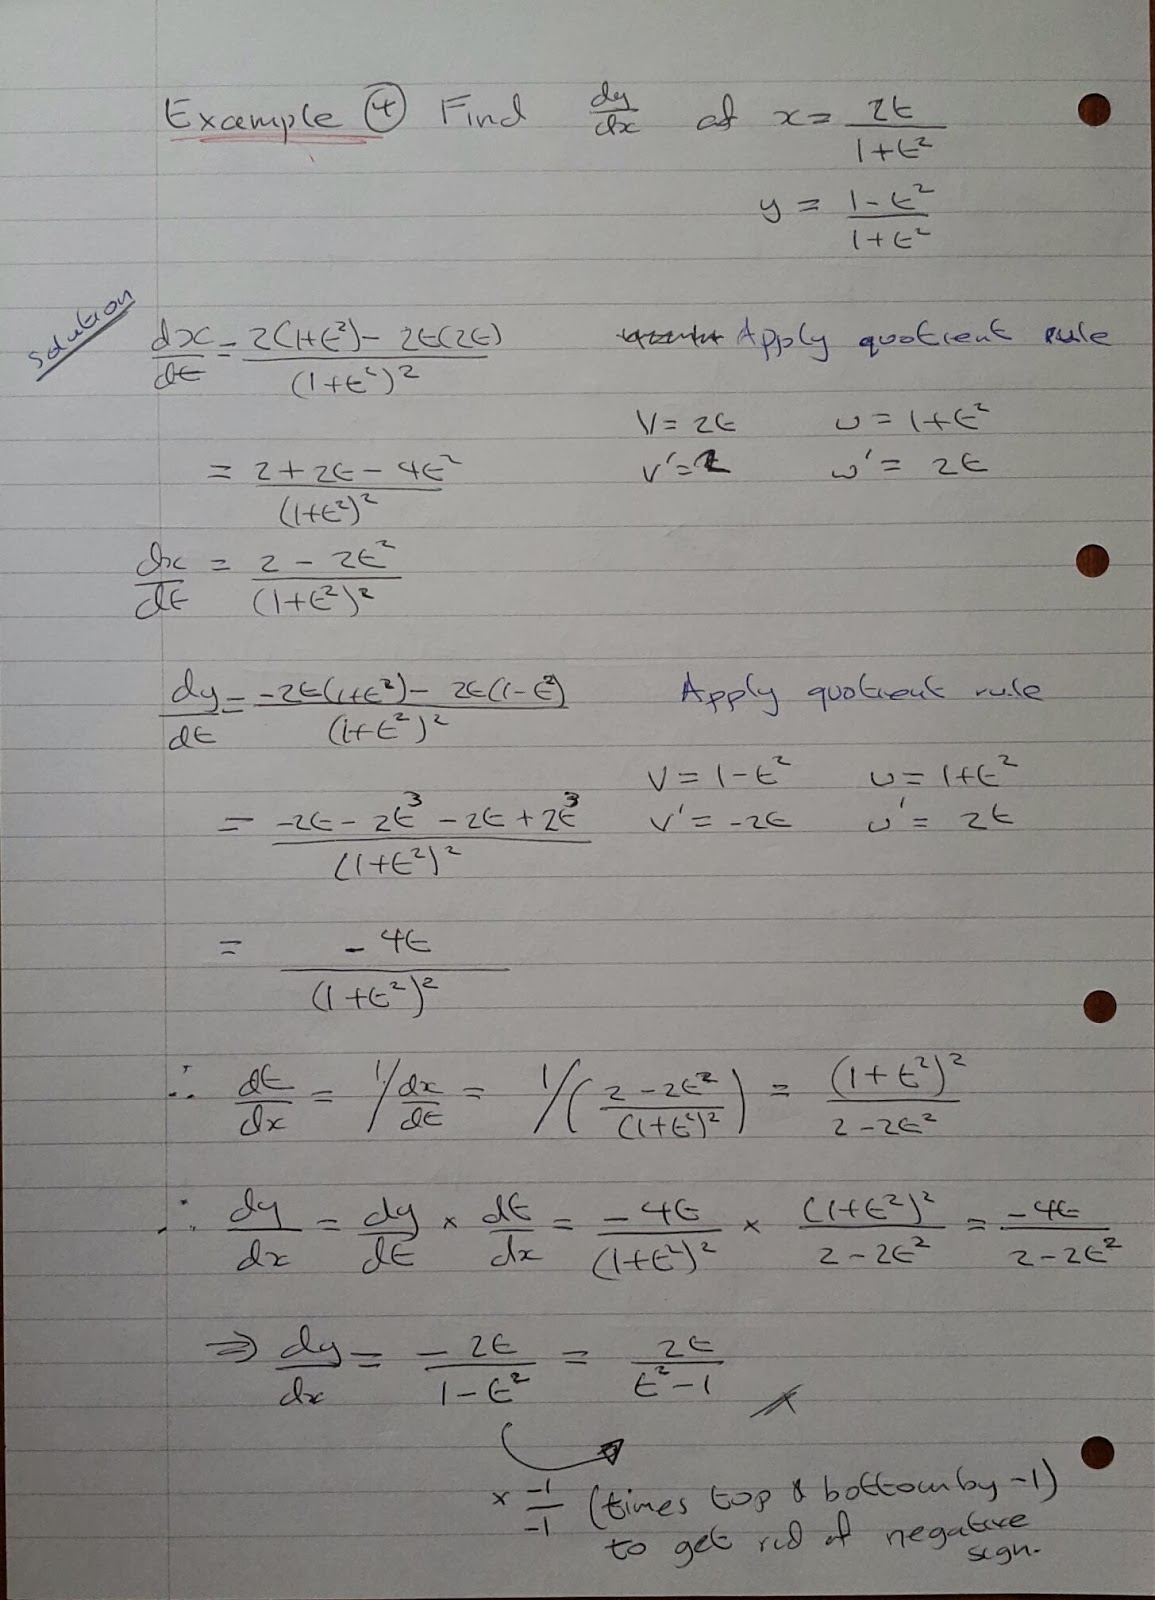 Example ④ Find dy/dx at x = 2t/(1+t²)
y = (1-t²)/(1+t²)
Solution
dx/dt = (2(1+t²) - 2t(2t))/(1+t²)² Apply quotient rule
V = 2t u = 1+t²
= (2 + 2t - 4t²)/(1+t²)² V' = 2 u' = 2t
dx/dt = (2 - 2t²)/(1+t²)²
dy/dt = (-2t(1+t²) - 2t(1-t²))/(1+t²)² Apply quotient rule
V = 1-t² u = 1+t²
= (-2t - 2t³ - 2t + 2t³)/(1+t²)² V' = -2t u' = 2t
= -4t/(1+t²)²
∴ dt/dx = 1/(dx/dt) = 1/((2-2t²)/(1+t²)²) = (1+t²)²/(2-2t²)
∴ dy/dx = dy/dt × dt/dx = -4t/(1+t²)² × (1+t²)²/(2-2t²) = -4t/(2-2t²)
⇒ dy/dx = -2t/(1-t²) = 2t/(t²-1)
× -1/-1 (times top & bottom by -1)
to get rid of negative
sign.